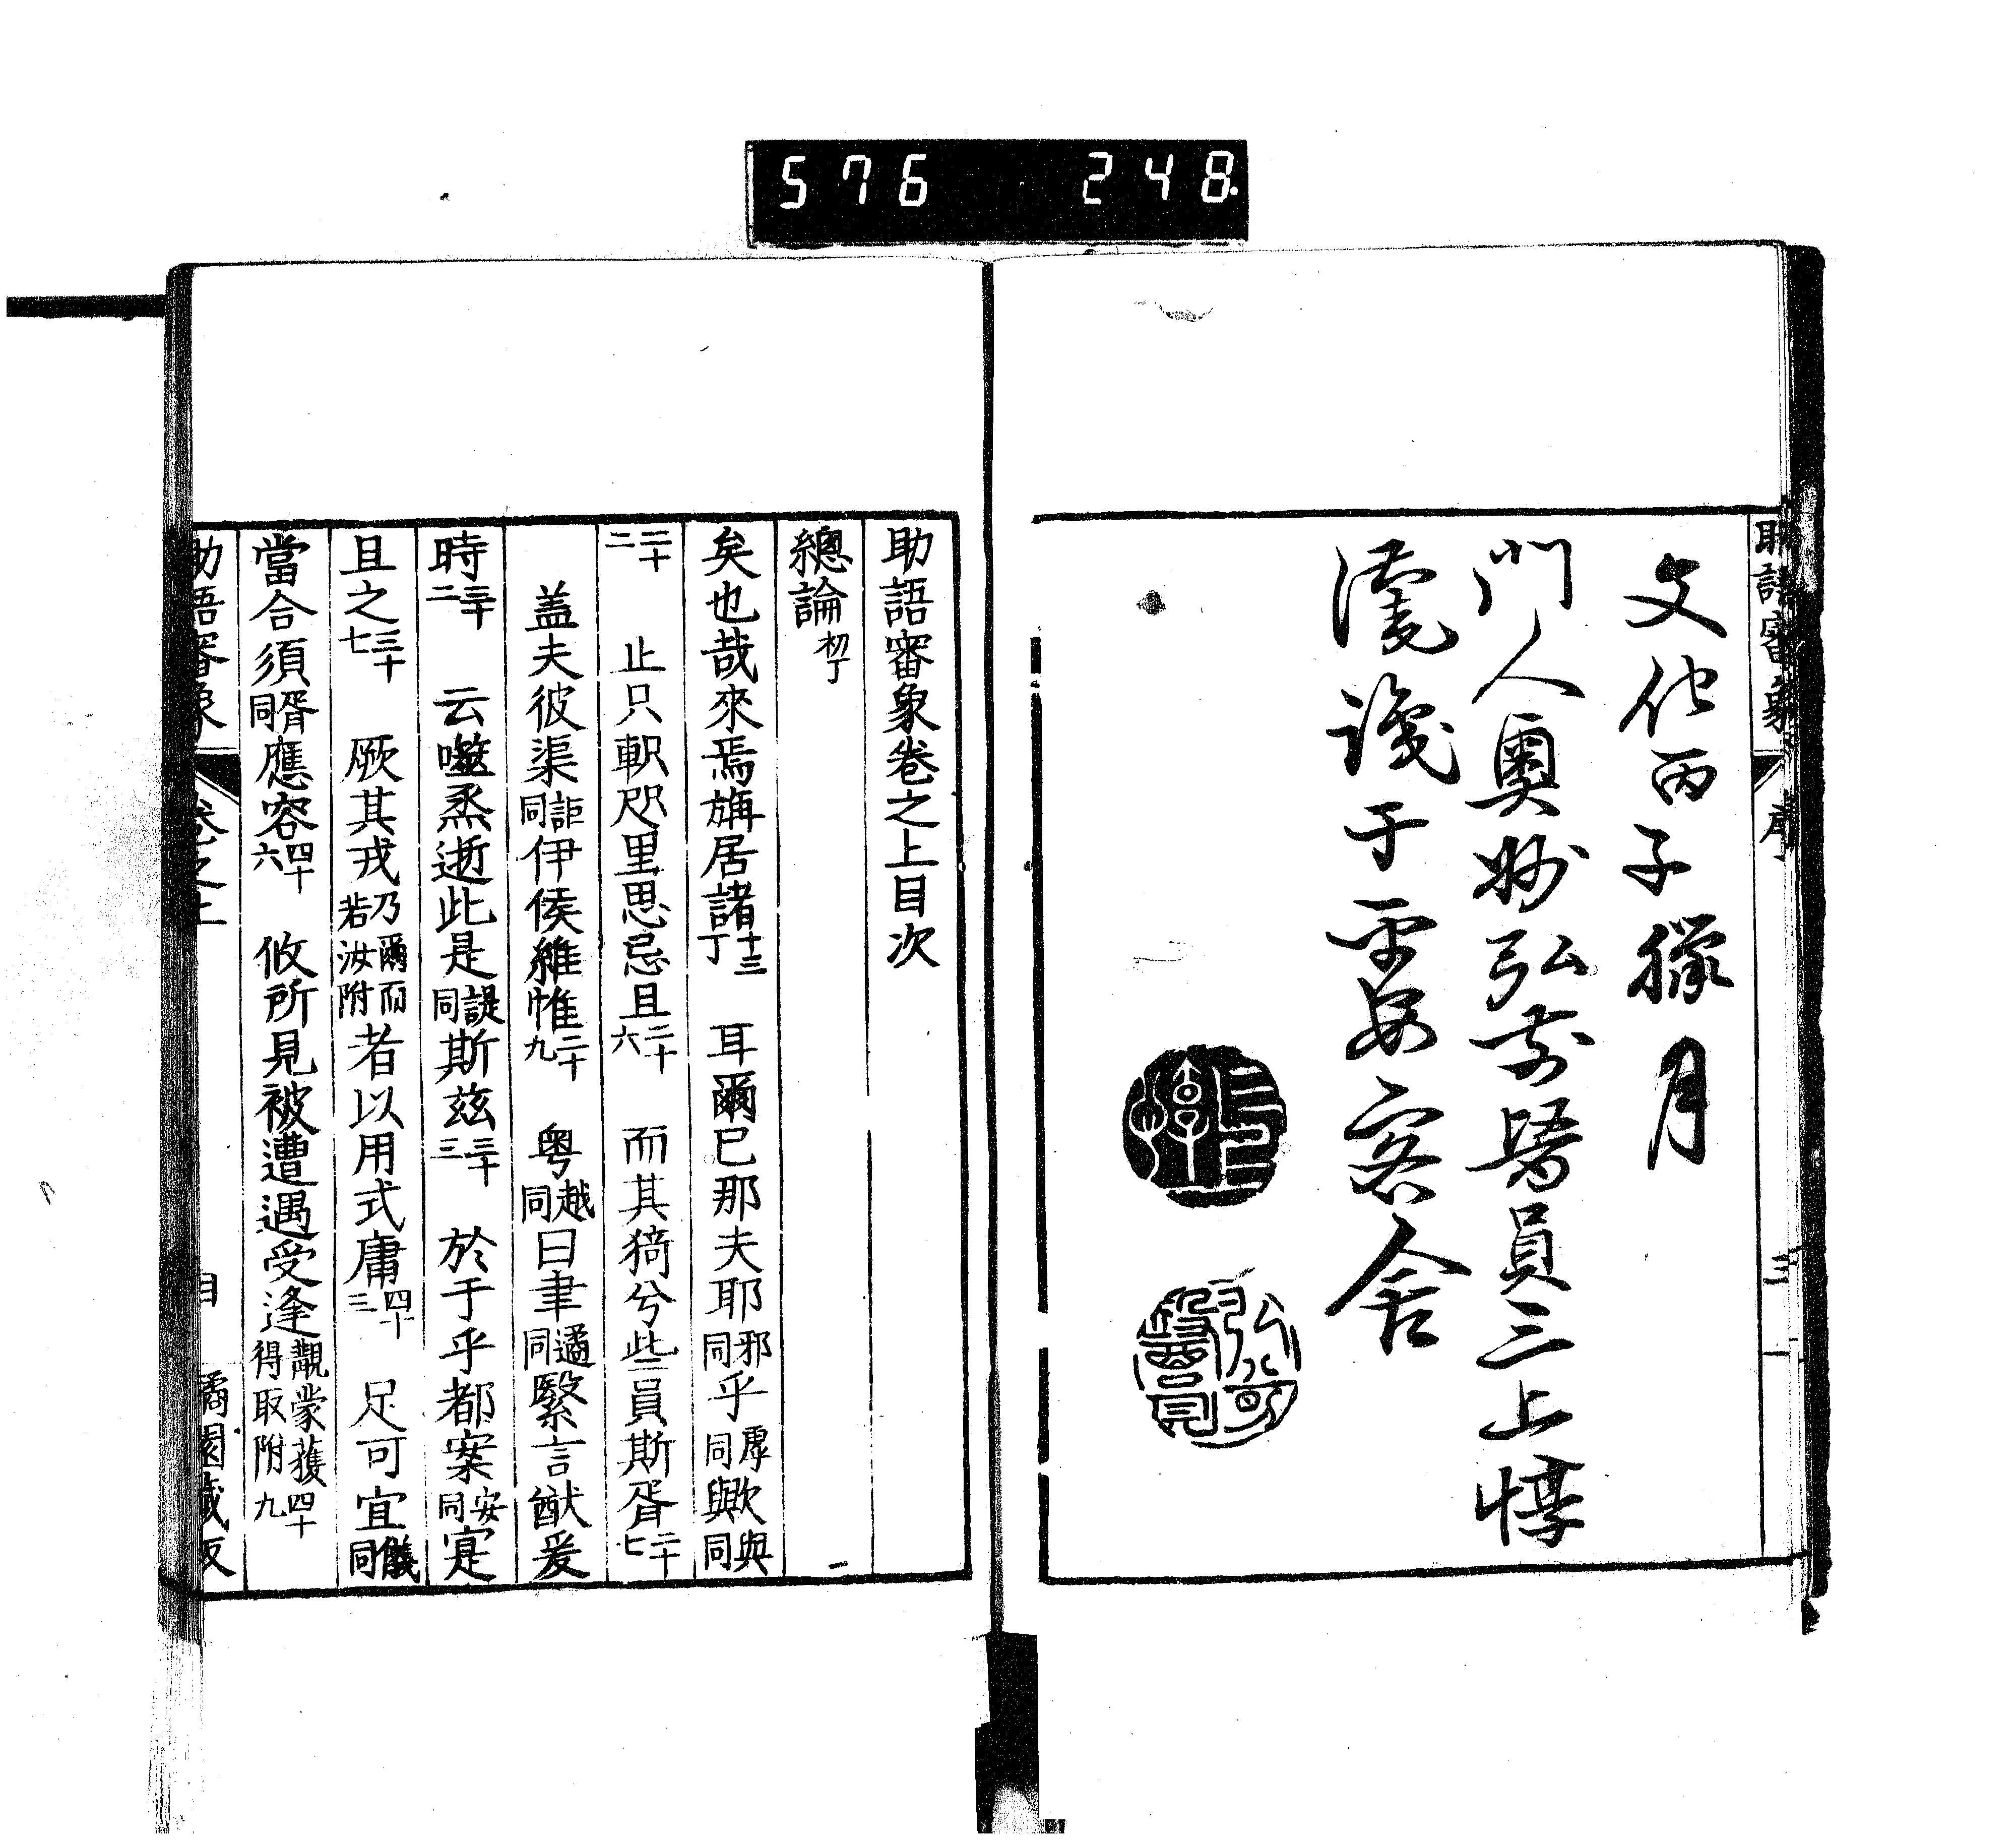 576 248
助語審象 序 三
文化丙子臘月
門人奧州弘前醫員三上惇
濅識于平安客舍
助語審象卷之上目次
總論初丁
矣也哉來焉旃居諸十三丁 耳爾已那夫耶邪同乎虖同歟與與同
二十二 止只軹咫里思忌且二十六 而其猗兮些二員斯胥二十七
蓋夫彼渠詎同伊侯維惟二十九 粵越同曰聿遹同繄言猷爰
時三十二 云噬烝逝此是諟同斯茲三十三 於于乎都案安同寔
且之三十七 厥其戎乃爾而若汝附者以用式庸四十三 足可宜儀同
當合須胥同應容四十六 攸所見被遭遇受逢覯蒙獲得取附四十九
助語審象 卷之上 目 一 橘園藏板